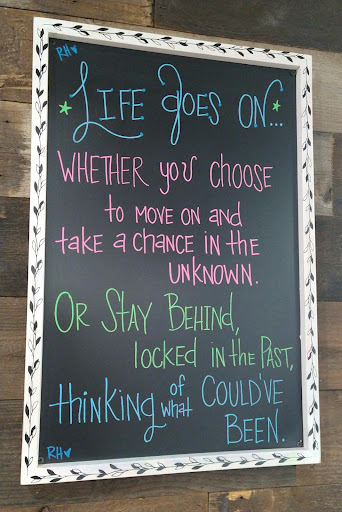 RH♥
LIFE goes ON...
WHETHER you CHOOSE
to MOVE ON AND
take A CHANCE IN the
UNKNOWN.
OR STAY BEHIND,
locked IN the PAST,
thinking of what COULD'VE
BEEN.
RH♥